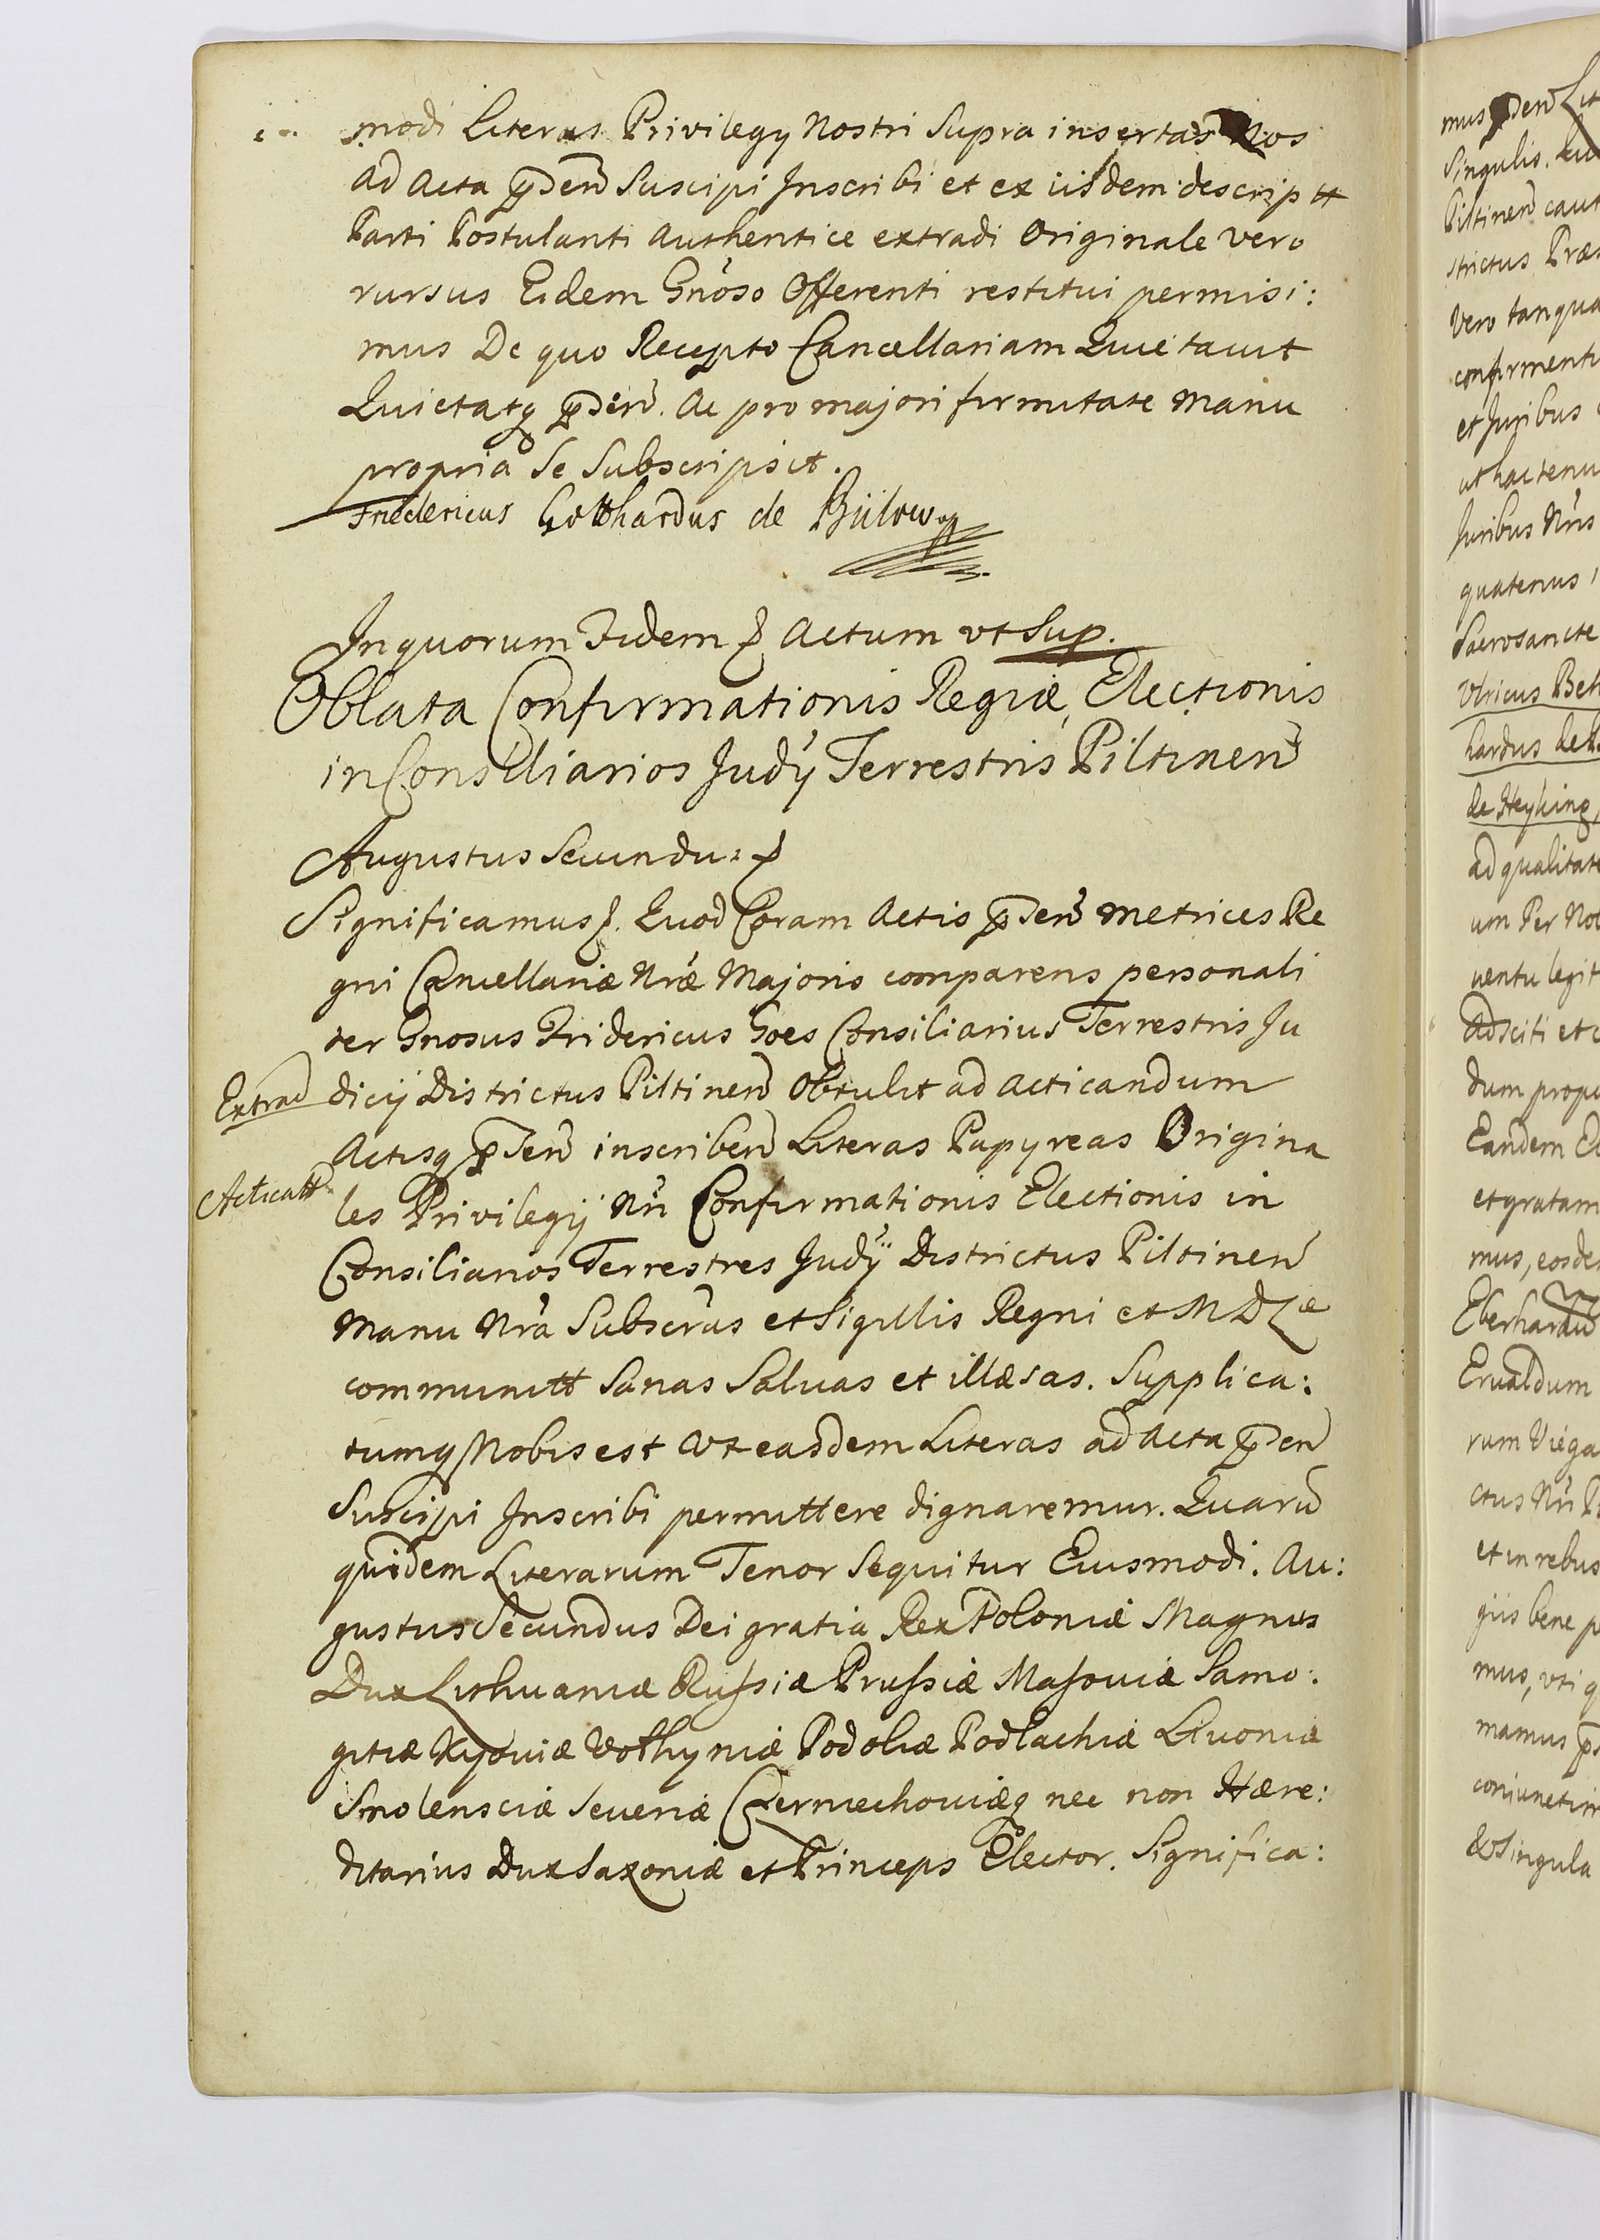 modi Literas Privilegy Nostri Supra insertas Nos
ad Acta pñden Suscipi Inscribi et ex iisdem descriptt
Parti Postulanti Authentice extradi Originale vero
rursus Eidem Gnõso Offerenti restitui permisi:
mus De quo Recepto Cancellariam Quietavit
Quietatq pñden. Ac pro majori firmitate manu
propria Se Subscripsit.
Fridericus Gotthardus de Bülow
In quorum Fidem Actum vt Sup.
Oblata Confirmationis Regiæ Electionis
in Consiliarios Judÿ Terrestris Piltinen
Augustus Secundus
Significamus. Quod Coram Actis pñden metrices Re
gni Cancellariæ Nræ Majoris comparens personali
ter Gnosus Fridericus Goes Consiliarius Terrestris Ju
Extrad dicij Districtus Piltinen Obtulit ad acticandum
Actisq pñden inscriben Literas Papyreas Origina
Acticatt les Privilegij Nri Confirmationis Electionis in
Consiliarios Terrestres Judÿ Districtus Piltinen
Manu Nra Subscras et Sigillis Regni et M D L æ
communitt Sanas Salvas et illæsas. Supplica:
tumq Nobis est Vt easdem Literas ad Acta pñden
Suscipi Inscribi permittere dignaremur. Quarũ
quidem Literarum Tenor Sequitur Eiusmodi. Au:
gustus Secundus Dei gratia Rex Poloniæ Magnus
Dux Lithuaniæ Russiæ Prussiæ Masoviæ Samo:
gitiæ Kyoviæ Volhyniæ Podoliæ Podlachiæ Livoniæ
Smolensciæ Severiæ Czerniechoviæq nec non Hære:
ditarius Dux Saxoniæ et Princeps Elector. Significa:
mus pñden Lit
Singulis.
Piltinen caut
strictus Præs
Vero tanqua
confirmenti
et Juribus
ut hactenu
Juribus Nris
quatenus
Sacrosancte
Vlricus Beh
hardus de
de Heyking,
ad qualitate
um Per Nob
ventu legit
adsciti et c
dum propo
Eandem El
et gratam
mus, eosde
Eberhardũ
Ewaldum
rum Viega
ctus Nri P
et in rebus
giis bene p
mus, vti q
mamus
coniunctim
et Singula